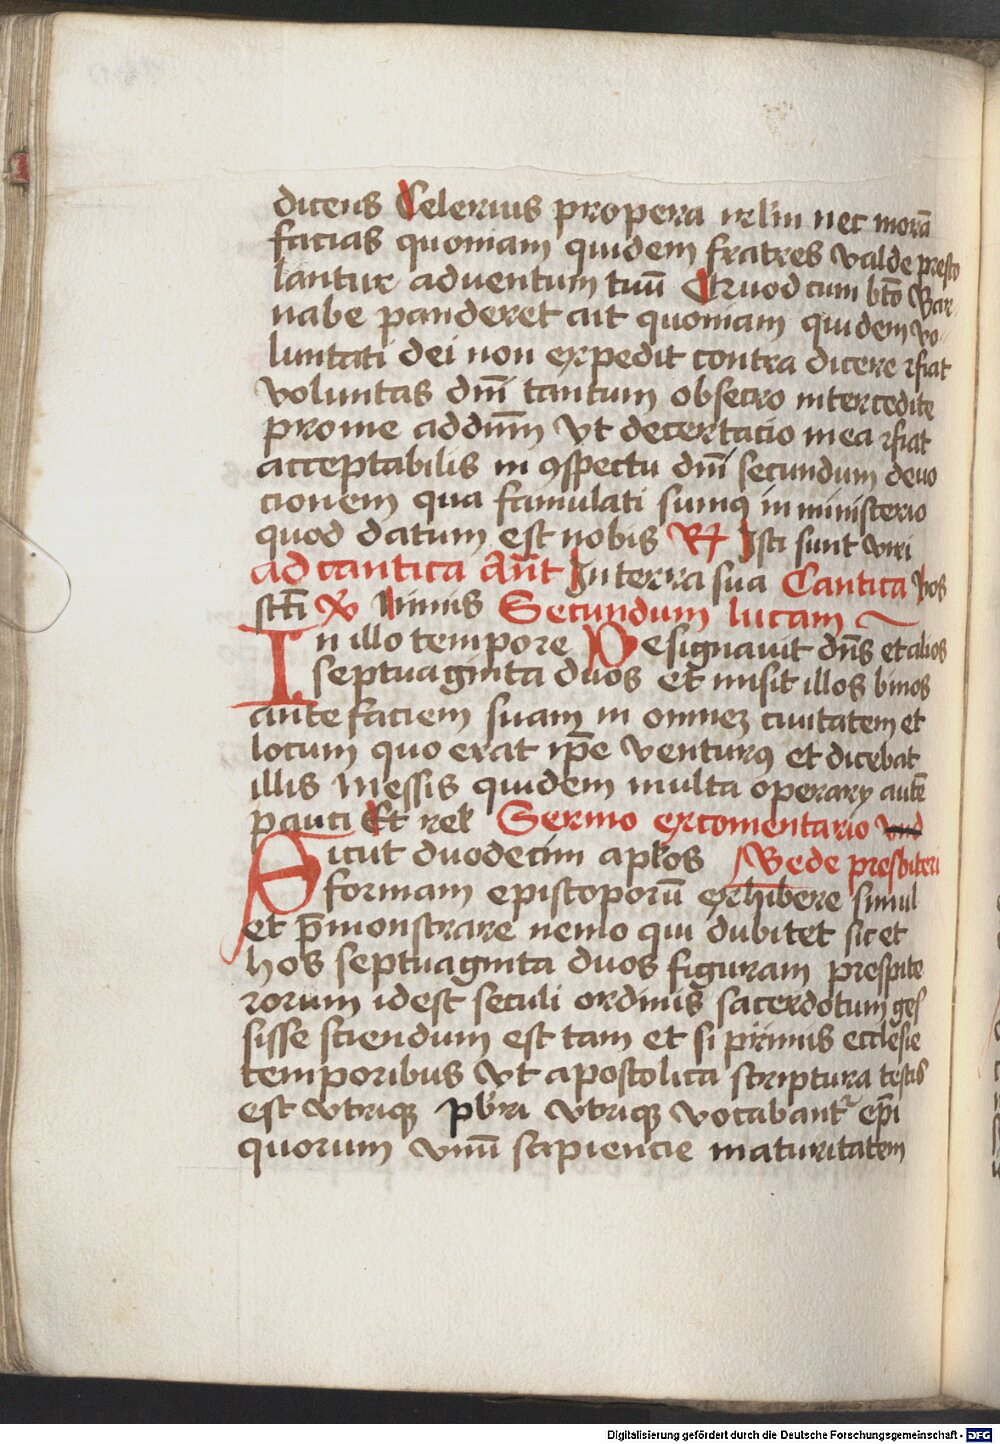 dicens Celerius propera irl̄m nec morā
facias quoniam quidem fratres valde presto
lantur adventum tuū Quod cum bt̄o Bar-
nabe panderet ait quoniam quidem vo-
luntati dei non expedit contra dicere ⁊fiat
voluntas dnī tantum obsecro intercedite
pro me ad dnm̄ vt decertacio mea ⁊fiat
acceptabilis in ꝯspectu dnī secundum deuo
cionem qua famulati sumꝯ in ministerio
quod datum est nobis R̸ Isti sunt viri
ad cantica An̄t In terra sua Cantica Vos
sctī V̸ Nimis Secundum lucam
In illo tempore Designavit dn̄s et alios
septuaginta duos et misit illos binos
ante faciem suam in omnez ciuitatem et
locum quo erat ip̄e venturꝯ et dicebat
illis Messis quidem multa operarij autē
pauci Et rel̄ Sermo ex comentario
Sicut duodecim apl̄os Bede presbiteri
formam episcoporū exhibere simul
et p̄monstrare nemo qui dubitet sic et
hos septuaginta duos figuram prespite
rorum id est seculi ordinis sacerdotum ges
sisse sciendum est tam et si primis ecclesie
temporibus vt apostolica scriptura testis
est vtriqꝫ pb̄ri vtriqꝫ vocabant᷑ ep̄i
quorum vnū sapiencie maturitatem
Digitalisierung gefördert durch die Deutsche Forschungsgemeinschaft - DFG